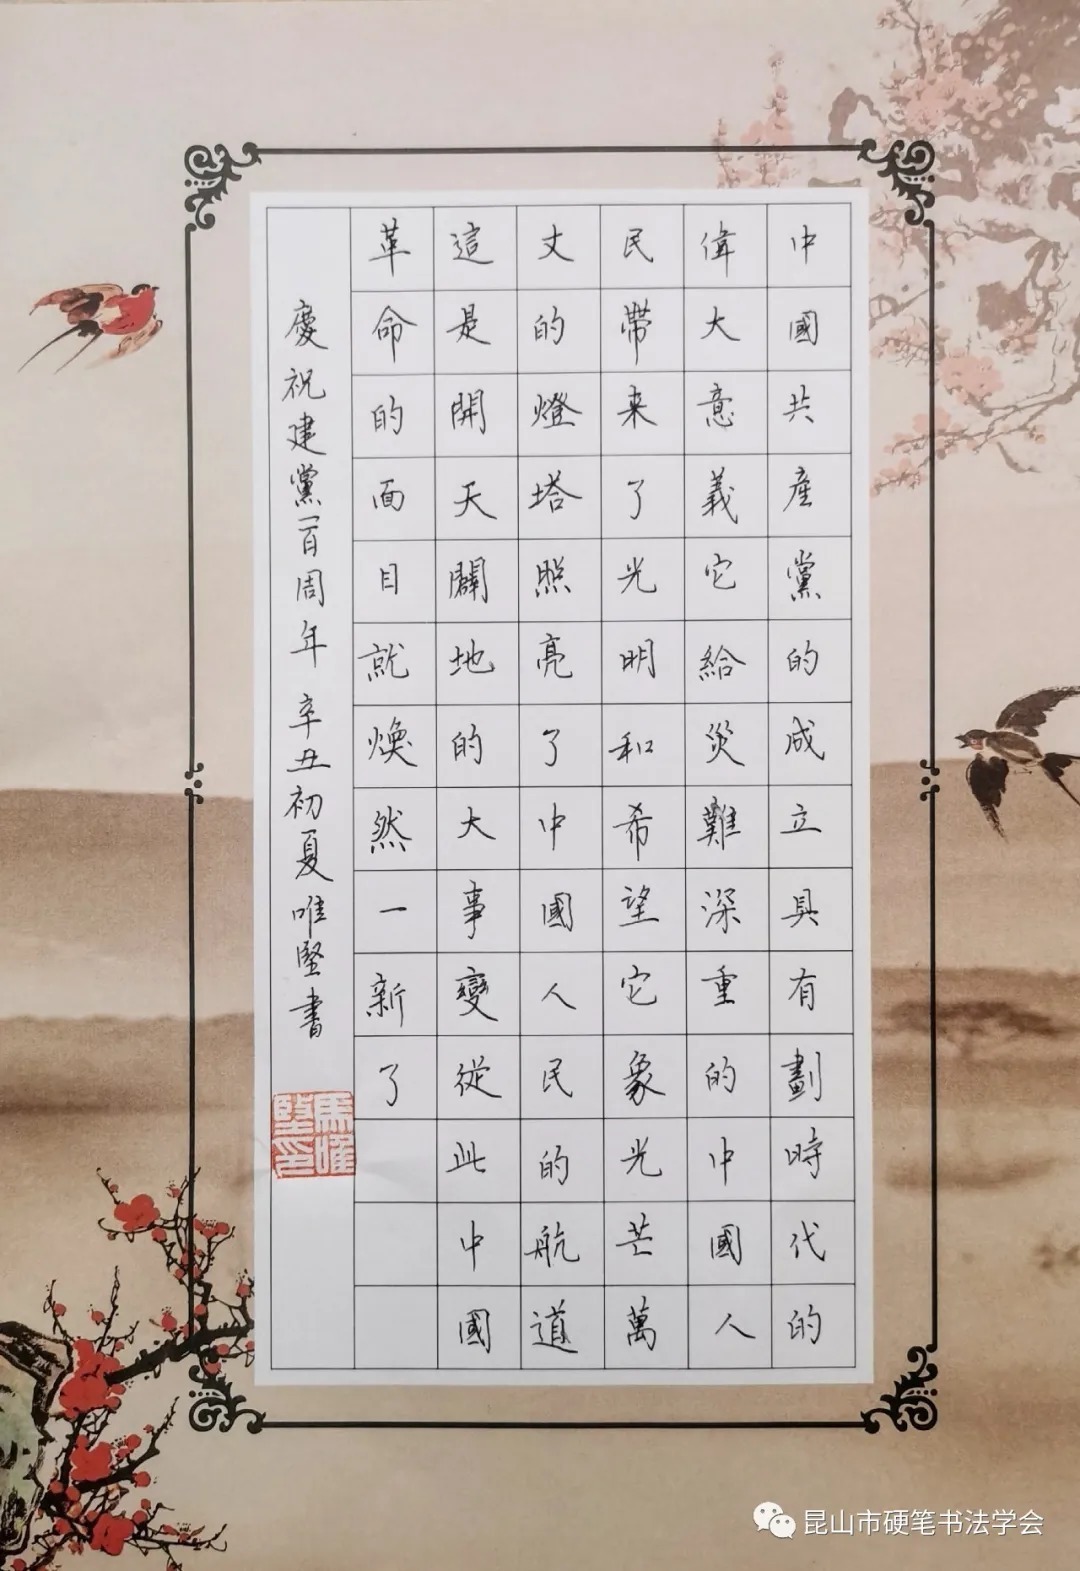 中國共產黨的成立具有劃時代的
偉大意義它給災難深重的中國人
民帶来了光明和希望它象光芒萬
丈的燈塔照亮了中國人民的航道
這是開天闢地的大事變從此中國
革命的面目就煥然一新了
慶祝建黨一百周年 辛丑初夏唯堅書
昆山市硬笔书法学会